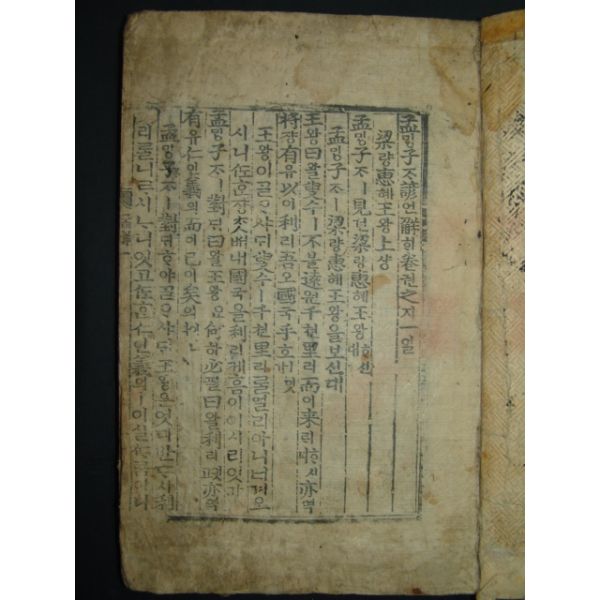 孟ᄆᆡᆼ子ᄌᆞ諺언解ᄒᆡ卷권之지一일
梁량惠혜王왕上샹
孟ᄆᆡᆼ子ᄌᆞㅣ見견梁량惠혜王왕ᄒᆞ신대
孟ᄆᆡᆼ子ᄌᆞㅣ梁량惠혜王왕을보신대
王왕曰왈叟수ㅣ不블遠원千쳔里리而이來ᄅᆡᄒᆞ시니亦역
將쟝有유以이利리吾오國국乎호잇가
王왕이ᄀᆞᆯᄋᆞ샤ᄃᆡ叟수ㅣ千쳔里리ᄅᆞᆯ멀리아니너겨오
시니ᄯᅩ쟝ᄎᆞᆺᄡᅥ내國국을利리케홈이이시리잇가
孟ᄆᆡᆼ子ᄌᆞㅣ對ᄃᆡ曰왈王왕은何하必필曰왈利리잇고亦역
有유仁인義의而이已이矣의니이다
孟ᄆᆡᆼ子ᄌᆞㅣ對ᄃᆡᄒᆞ야ᄀᆞᆯᄋᆞ샤ᄃᆡ王왕은엇디반ᄃᆞ시
리ᄅᆞᆯ니ᄅᆞ시ᄂᆞ니잇고ᄯᅩᄒᆞᆫ仁인義의ㅣ이실ᄯᆞᄅᆞᆷ이니